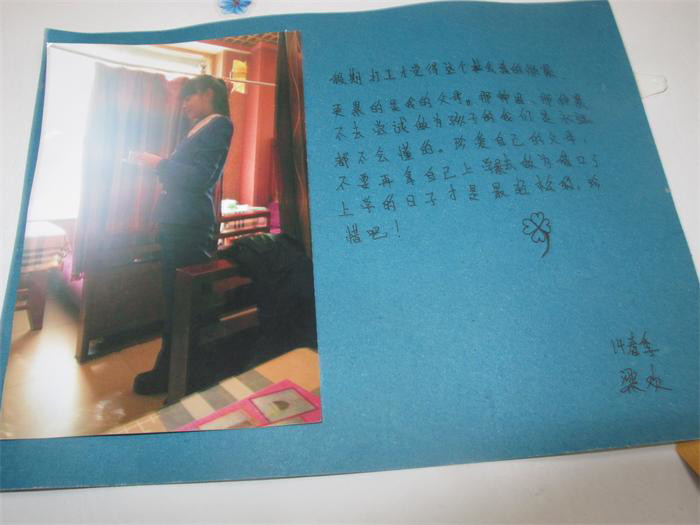 假期打工才觉得这个社会真的很累
更累的是我的父母。那种累,那种累
不去尝试做为孩子的我们是永远
都不会懂的。珍爱自己的父母,
不要再拿自己上学去做为借口了
上学的日子才是最轻松的,珍
惜吧!
14春季
梁欢